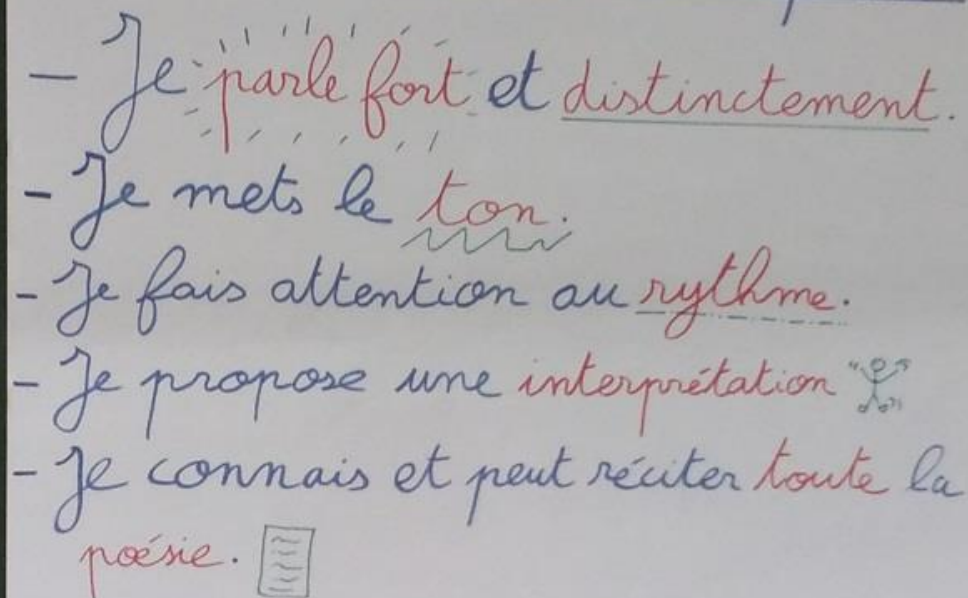 - Je parle fort et distinctement.
- Je mets le ton.
- Je fais attention au rythme.
- Je propose une interprétation
- Je connais et peut réciter toute la
poésie.